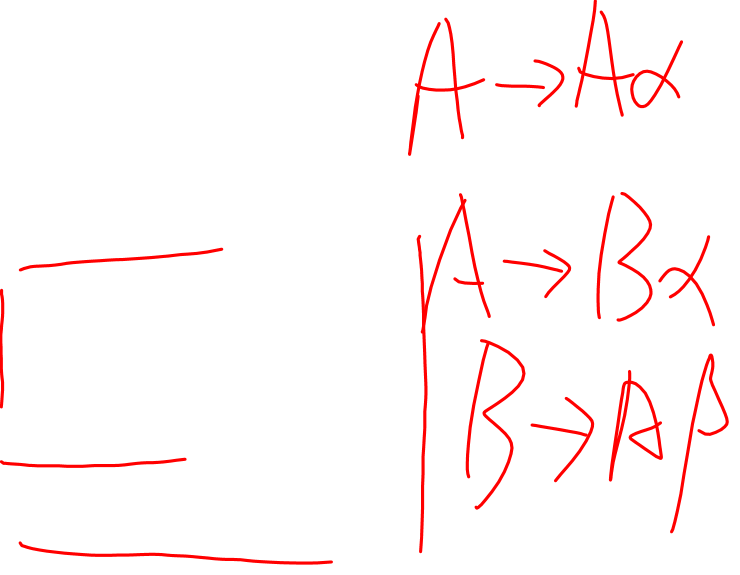 A → Aα
A → Bα
B → Aβ